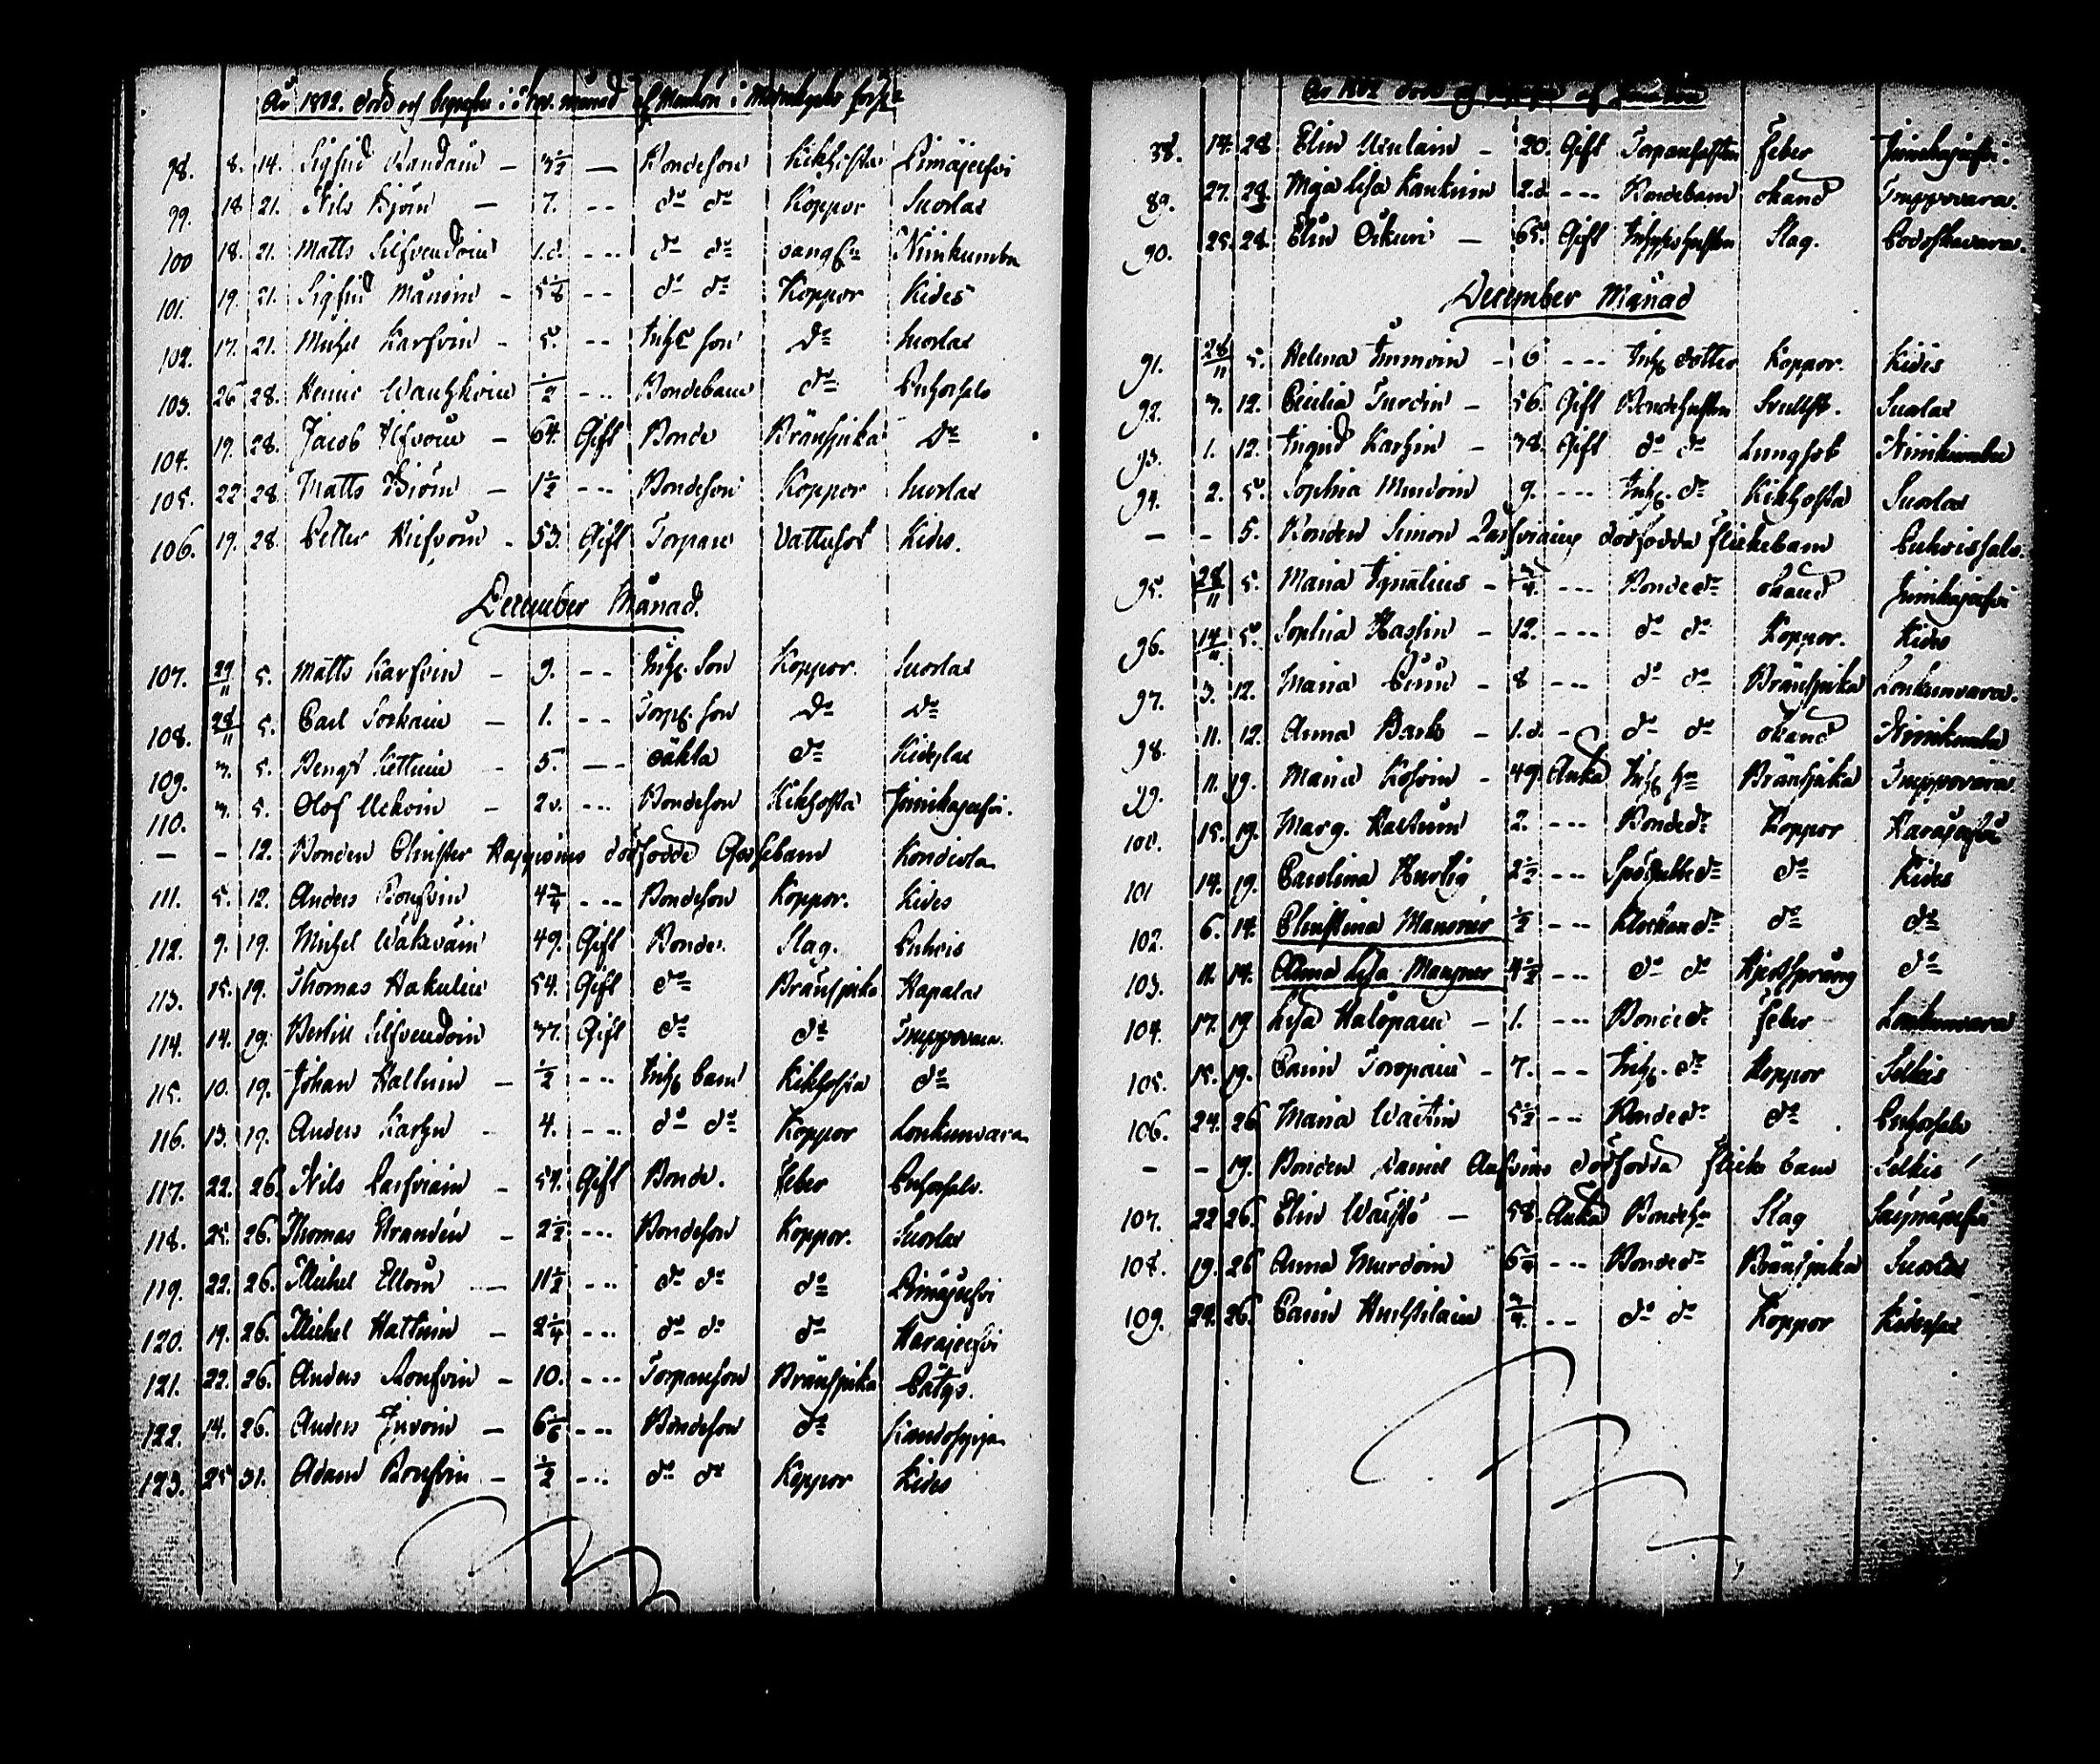 År 1802. död och begrafne i i Nov. månad af Mankön i
98. 8. 14. Sigfrid — 3½ — Bondeson Kikhosta Pimäjerfvi
99. 18 21. Nils Björn — 7. -- do do Koppor Suorlax
100 18. 21. Matts Silfvendoin 1.d. --- do do Niinikumbu
101. 19. 21. Sigfrid Manoin - 5 1/6 -- do do Koppor Kides
102. 17. 21. Michel Karfvin - 5. -- Inhs son do Suorlax
103. 26 28. Henric ½ --- Bondebarn do Puhossalo
104. 19. 28. Jacob Ilfvoin - 64. Gift Bonde Bränsjuka do
105. 22 28. Matts Biörn — 1½ --- Bondeson Koppor Suorlax
106. 19. 28. Petter Hirfvoin - 53. Gift Torpare Vattusot Kides.
December Månad.
107. 29/11 5. Matts Karfvin - 9. -- Inhs. Son Koppor. Suorlax
108. 28/11 5. Carl Sorkain — 1. -- Torps. son do do
109. 3. 5. Bengt Kettuin - 5. --- oäkta do Kideslax
110. 3. 5. Olof Uckoin — 2d. --- Bondeson Kikhosta Juurikajerfvi.
— - 12. Bonden Christer Happoines dödfödde Gossebarn Kondiola
111. 5. 12. Anders Ronfvin 4 3/4 --- Bondeson Koppor. Kides
112. 9. 19. Michel Wäkeväin 49. Gift Bonde. Slag. Puhois
113. 15. 19. Thomas Hakulin 54. Gift do Bränsjuka Hapalax
114. 14. 19. Bertill Silfvendoin 37. Gift do do Truppovara.
115. 10. 19. Johan Halluin — ½ --- Inhs barn Kikhosta do
116. 13. 19. Anders Karhu - 4. --- do do Koppor Lonkunvara
117. 22. 26. Nils Parfviain - 59. Gift Bonde. Feber Puhossalo.
118. 25. 26. Thomas Strandin - 2½ --- Bondeson Koppor. Suorlax
119. 22. 26. Michel Elloin — 11½ --- do do do Pimäjerfvi
120. 19. 26. Michel Hattuin — 2¼ --- do do do Harajerfvi
121. 22. 26. Anders Ronfvin - 10. --- Torpareson Bränsjuka Pätys.
122. 14. 26. Anders Juvoin — 6 1/6 --- Bondeson do
123. 25 31. Adam Ronfvin - ½ --- do do Koppor Kides
År 1802 död och af
88. 14. 28 Elin - 20. Gift Torparehustru Feber Juurikajerfvi.
89. 27. 28. Maja Lisa Kankuin 2.d. --- Bondebarn okänd Truppovara.
90. 25. 28. Elin Oikuri — 65. Gift Inhyseshustru Slag. Podoskavara.
December Månad
91. 28/11 5. Helena Immoin - 6 --- Inhs dotter Koppor. Kides
92. 3. 12. Cicilia Turoin - 56. Gift Bondehustru Svullst. Suorlax
93. 1. 12. Ingrid Karhin - 38. Gift do do Lungsot Niinikumbu
94. 2. 5. Sophia Mundoin 9. --- Inhs. do Kikhosta Suorlax
— - 5. Bonden Simon Parfviaines dödfödda flickebarn Puhoissalo.
95. 28/11 5. Maria Ignatius - 3/4. --- Bonde do okänd Juurikajerfvi
96. 14/11 5. Sophia - 12. --- do do Koppor. Kides
97. 3. 12. Maria - 8 --- do do Bränsjuka Lonkunvara.
98. 11. 12. Anna Parko - 1.d. - do do okänd Niinikumbu
99. 11. 19. Maria Kosoin - 49. Änka Inhs hu Bränsjuka Truppovara
100. 15. 19. Marg. Hattuin 2. --- Bonde do Koppor Harajerfvi
101 14. 19. Carolina Hurtig 2½ --- do do Kides
102. 6. 14. Christina Manoner ½ --- Klockare do do do
103. 11. 14. Anna Lisa Mangner 4½ --- do do Hjertsprång do
104. 17. 19 Lisa Halopain - 1. --- Bonde do Feber Lonkunvara
105. 15. 19. Carin Toropain - 7. --- Inhs. do Koppor Selkis
106. 24. 26 Maria 5½ --- Bonde do do Puhossalo
— - 19. Bonden Daniel dödfödda flicke barn Selkis
107. 22 26. Elin — 58. Änka Bondeh. Slag
108. 19. 26 Anna Murdoin 6 --- Bonde do Bränsjuka Suorlax
109. 24. 26. Carin 3/4. -- do do Koppor Kideslax